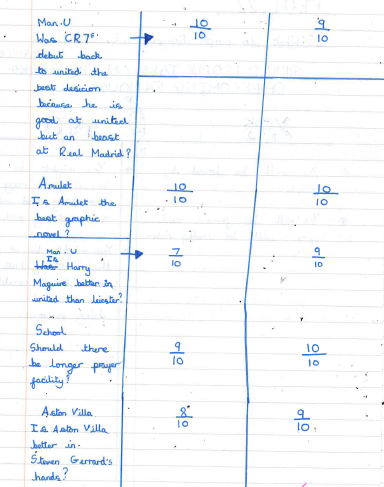 Man.U 10/10 9/10
Was 'CR7s'
debut back
to united the
best desicion
because he is
good at united
but an beast
at Real Madrid?
Amulet 10/10 10/10
Is Amulet the
best graphic
novel?
Man.U 7/10 9/10
Is Harry
Maguire better in
united than leicster?
School
Should there 9/10 10/10
be longer prayer
facility?
Aston Villa 8/10 9/10
Is Aston Villa
better in
Steven Gerrard's
hands?